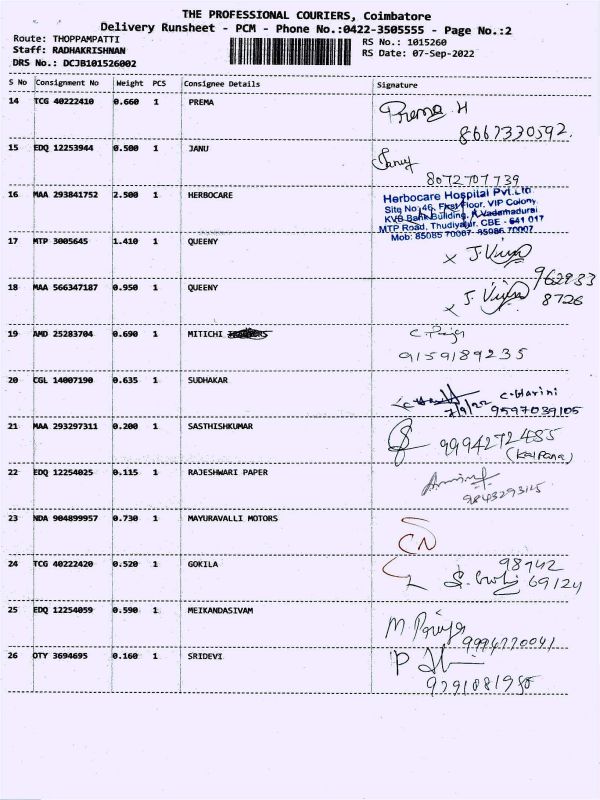 THE PROFESSIONAL COURIERS, Coimbatore
Delivery Runsheet - PCM - Phone No.:0422-3505555 - Page No.:2
Route: THOPPAMPATTI RS No.: 1015260
Staff: RADHAKRISHNAN RS Date: 07-Sep-2022
DRS No.: DCJB101526002
S No Consignment No Weight PCS Consignee Details Signature
14 TCG 40222410 0.660 1 PREMA Prema H
8667330592.
15 EDQ 12253944 0.500 1 JANU Janu
8072707739
16 MAA 293841752 2.500 1 HERBOCARE Herbocare Hospital Pvt.Ltd
Site No:46, First Floor, VIP Colony
KVB Bank Building, K.Vadamadurai
MTP Road, Thudiyalur, CBE - 641 017
Mob: 85085 70007- 85086 70007
17 MTP 3005645 1.410 1 QUEENY x J.
18 MAA 566347187 0.950 1 QUEENY x J. 962933
8726
19 AMD 25283704 0.690 1 MITICHI
9159189235
20 CGL 14007190 0.635 1 SUDHAKAR C.Harini
7/9/22 9597039105
21 MAA 293297311 0.200 1 SASTHISHKUMAR 9994272485
(Kalpana)
22 EDQ 12254025 0.115 1 RAJESHWARI PAPER
9843293145
23 NDA 904899957 0.730 1 MAYURAVALLI MOTORS CN
24 TCG 40222420 0.520 1 GOKILA 98942
69124
25 EDQ 12254059 0.590 1 MEIKANDASIVAM M Priya
9994770041
26 OTY 3694695 0.160 1 SRIDEVI P
9791081980